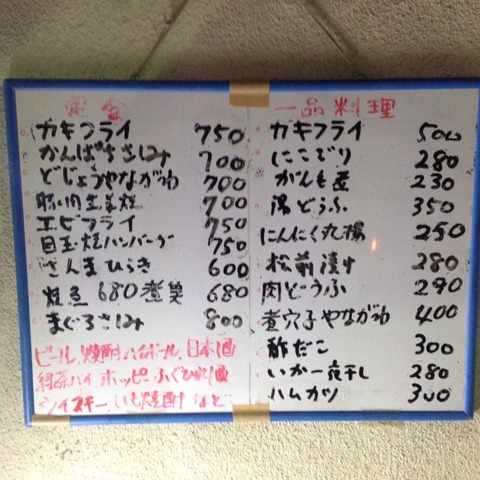 定食
カキフライ 750
かんぱちさしみ 700
どじょうやながわ 700
豚肉生姜焼 700
エビフライ 750
目玉焼ハンバーグ 750
さんまひらき 600
焼魚680煮魚 680
まぐろさしみ 800
ビール、焼酎ハイボール、日本酒
緑茶ハイ、ホッピー、ふぐひれ酒
ウイスキー、いも焼酎など
一品料理
カキフライ 500
にこごり 280
がんも煮 230
湯どうふ 350
にんにく丸揚 250
松前漬け 280
肉どうふ 290
煮穴子やながわ 400
酢だこ 300
いか一夜干し 280
ハムカツ 300